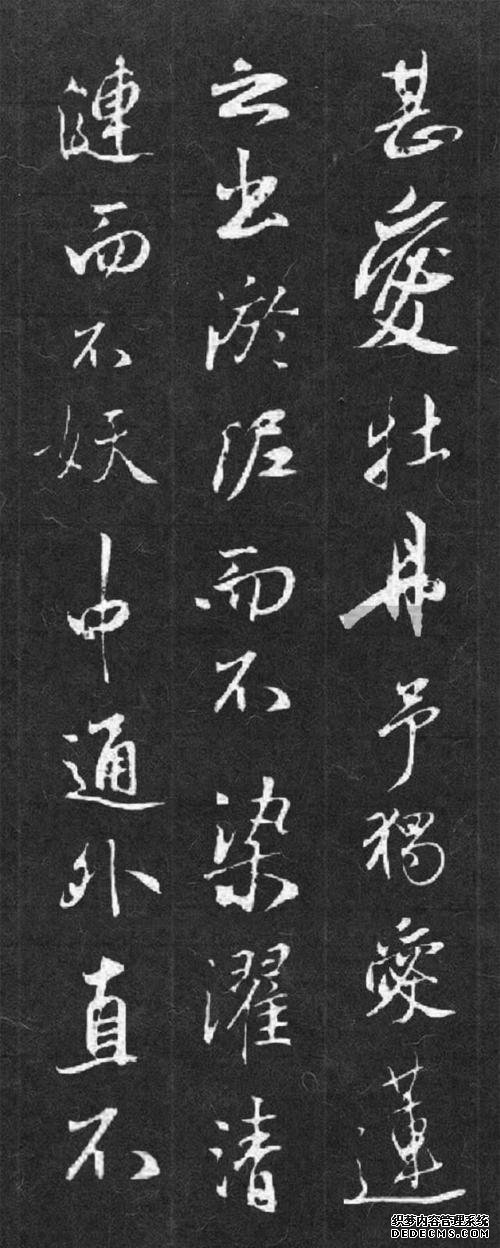 甚愛牡丹予獨愛蓮
之出淤泥而不染濯清
漣而不妖中通外直不
织梦内容管理系统
DEDECMS.COM